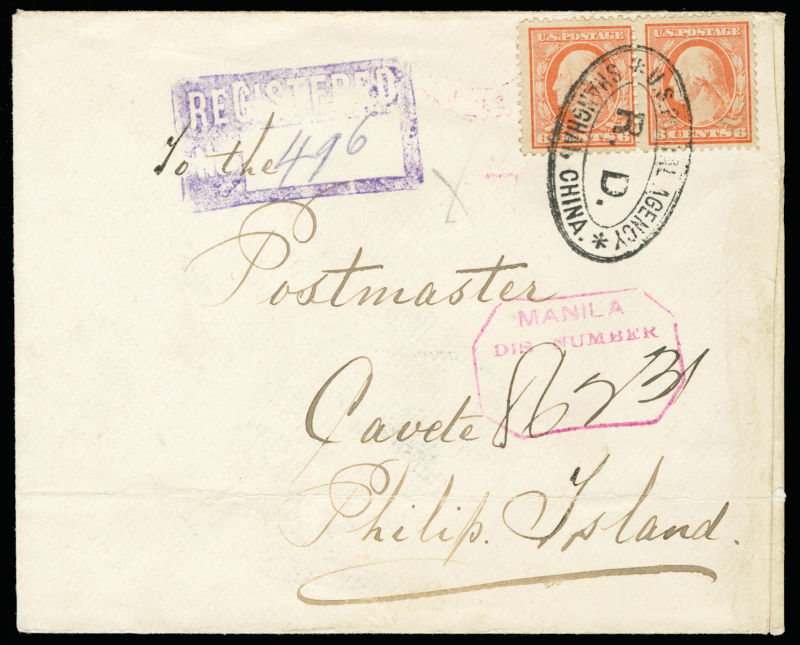 U.S. POSTAGE U.S. POSTAGE
6 CENTS 6 6 CENTS 6
U.S. POSTAL AGENCY
SHANGHAI, CHINA.
R. D.
REGISTERED
496
To the
Postmaster
MANILA
DIS NUMBER
Cavete
Philip. Island.